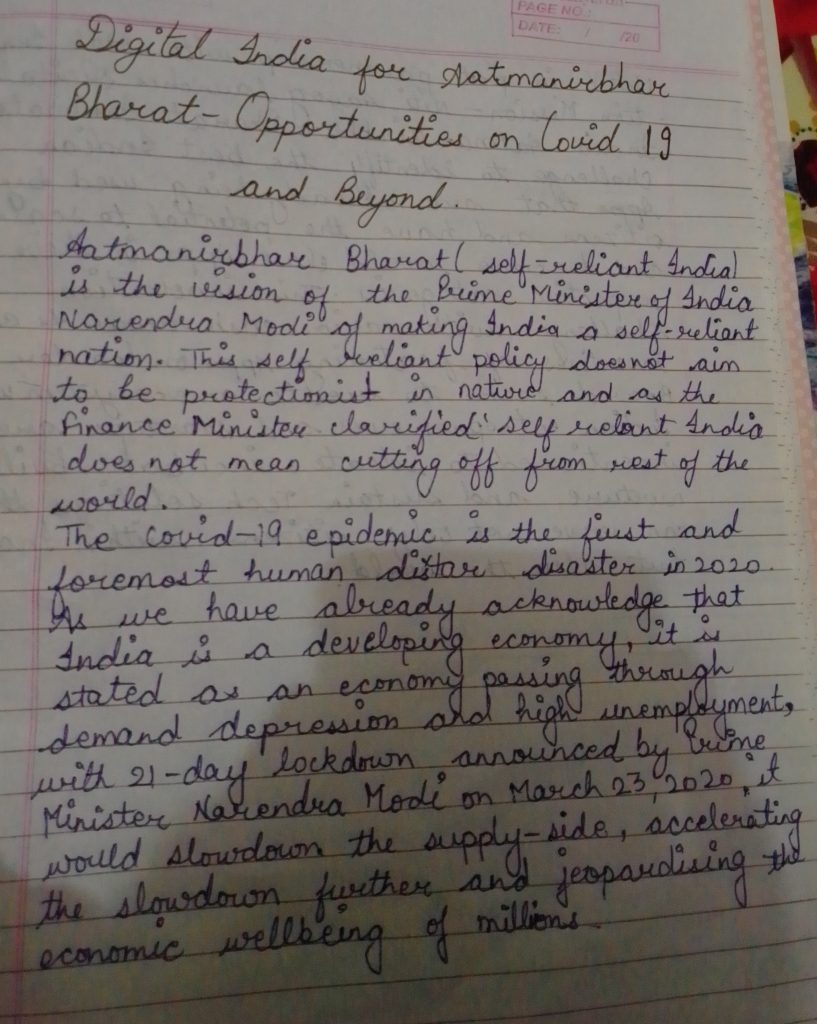 PAGE NO.:
DATE: / /20
Digital India for Aatmanirbhar
Bharat- Opportunities on Covid 19
and Beyond.
Aatmanirbhar Bharat ( self-reliant India)
is the vision of the Prime Minister of India
Narendra Modi of making India a self-reliant
nation. This self reeliant policy doesnot aim
to be protectionist in nature and as the
Finance Minister clarified' self reliant India
does not mean cutting off from rest of the
world.
The covid-19 epidemic is the first and
foremost human distar disaster in 2020.
As we have already acknowledge that
India is a developing economy, it is
stated as an economy passing through
demand depression and high unemployment,
with 21-day lockdown announced by Prime
Minister Narendra Modi on March 23, 2020, it
would slowdown the supply-side, accelerating
the slowdown further and jeopardising the
economic wellbeing of millions.